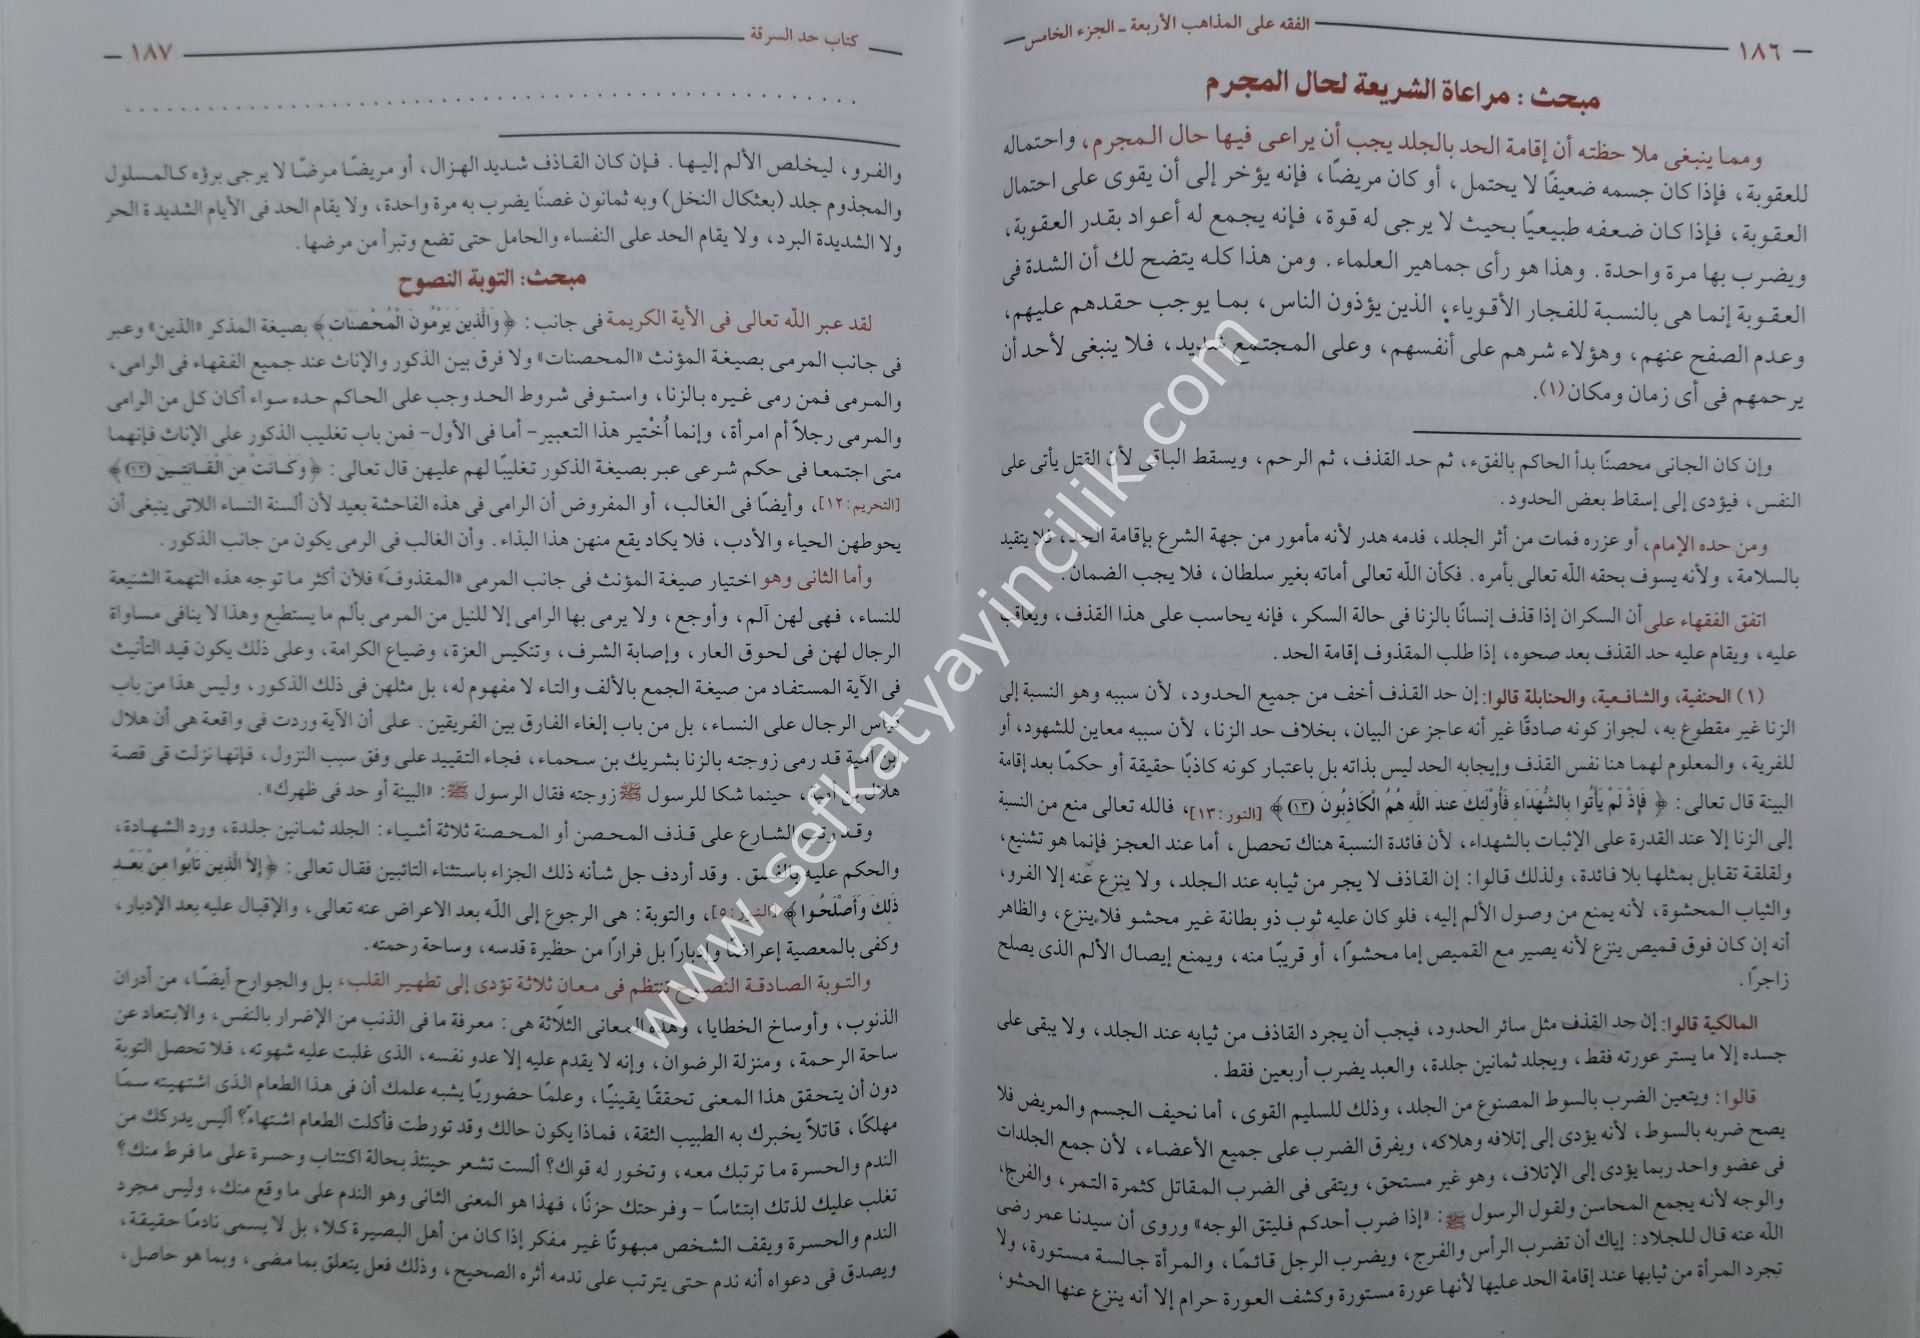 ١٨٦
الفقه على المذاهب الأربعة ـ الجزء الخامس
مبحث : مراعاة الشريعة لحال المجرم
ومما ينبغى ملا حظته أن إقامة الحد بالجلد يجب أن يراعى فيها حال المجرم، واحتماله
للعقوبة، فإذا كان جسمه ضعيفًا لا يحتمل، أو كان مريضًا، فإنه يؤخر إلى أن يقوى على احتمال
العقوبة، فإذا كان ضعفه طبيعيًا بحيث لا يرجى له قوة، فإنه يجمع له أعواد بقدر العقوبة،
ويضرب بها مرة واحدة. وهذا هو رأى جماهير العلماء. ومن هذا كله يتضح لك أن الشدة فى
العقوبة إنما هى بالنسبة للفجار الأقوياء، الذين يؤذون الناس، بما يوجب حقدهم عليهم،
وعدم الصفح عنهم، وهؤلاء شرهم على أنفسهم، وعلى المجتمع شديد، فلا ينبغى لأحد أن
يرحمهم فى أى زمان ومكان (١).
وإن كان الجانى محصنًا بدأ الحاكم بالفقء، ثم حد القذف، ثم الرحم، ويسقط الباقى لأن القتل يأتى على
النفس، فيؤدى إلى إسقاط بعض الحدود.
ومن حده الإمام، أو عزره فمات من أثر الجلد، فدمه هدر لأنه مأمور من جهة الشرع بإقامة الحد، فلا يتقيد
بالسلامة، ولأنه يسوف بحقه الله تعالى بأمره. فكأن الله تعالى أماته بغير سلطان، فلا يجب الضمان.
اتفق الفقهاء على أن السكران إذا قذف إنسانًا بالزنا فى حالة السكر، فإنه يحاسب على هذا القذف، ويعاقب
عليه، ويقام عليه حد القذف بعد صحوه، إذا طلب المقذوف إقامة الحد.
(١) الحنفية، والشافعية، والحنابلة قالوا: إن حد القذف أخف من جميع الحدود، لأن سببه وهو النسبة إلى
الزنا غير مقطوع به، لجواز كونه صادقًا غير أنه عاجز عن البيان، بخلاف حد الزنا، لأن سببه معاين للشهود، أو
للفرية، والمعلوم لهما هنا نفس القذف وإيجابه الحد ليس بذاته بل باعتبار كونه كاذبًا حقيقة أو حكمًا بعد إقامة
البينة قال تعالى: ﴿ فَإِذْ لَمْ يَأْتُوا بِالشُّهَدَاءِ فَأُوْلَئِكَ عِندَ اللَّهِ هُمُ الْكَاذِبُونَ (١٣)﴾ [النور:١٣]، فالله تعالى منع من النسبة
إلى الزنا إلا عند القدرة على الإثبات بالشهداء، لأن فائدة النسبة هناك تحصل، أما عند العجز فإنما هو تشنيع،
ولقلقة تقابل بمثلها بلا فائدة، ولذلك قالوا: إن القاذف لا يجر من ثيابه عند الجلد، ولا ينزع عنه إلا الفرو،
والثياب المحشوة، لأنه يمنع من وصول الألم إليه، فلو كان عليه ثوب ذو بطانة غير محشو فلا ينزع، والظاهر
أنه إن كان فوق قميص ينزع لأنه يصير مع القميص إما محشوًا، أو قريبًا منه، ويمنع إيصال الألم الذى يصلح
زاجرًا.
المالكية قالوا: إن حد القذف مثل سائر الحدود، فيجب أن يجرد القاذف من ثيابه عند الجلد، ولا يبقى على
جسده إلا ما يستر عورته فقط، ويجلد ثمانين جلدة، والعبد يضرب أربعين فقط.
قالوا: ويتعين الضرب بالسوط المصنوع من الجلد، وذلك للسليم القوى، أما نحيف الجسم والمريض فلا
يصح ضربه بالسوط، لأنه يؤدى إلى إتلافه وهلاكه، ويفرق الضرب على جميع الأعضاء، لأن جمع الجلدات
فى عضو واحد ربما يؤدى إلى الإتلاف، وهو غير مستحق، ويتقى فى الضرب المقاتل كثمرة التمر، والفرج،
والوجه لأنه يجمع المحاسن ولقول الرسول ﷺ: «إذا ضرب أحدكم فليتق الوجه» وروى أن سيدنا عمر رضى
الله عنه قال للجلاد: إياك أن تضرب الرأس والفرج، ويضرب الرجل قائمًا، والمرأة جالسة مستورة، ولا
تجرد المرأة من ثيابها عند إقامة الحد عليها لأنها عورة مستورة وكشف العورة حرام إلا أنه ينزع عنها الحشو،
كتاب حد السرقة
١٨٧
والفرو، ليخلص الألم إليها. فإن كان القاذف شديد الهزال، أو مريضًا مرضًا لا يرجى برؤه كالمسلول
والمجذوم جلد (بعثكال النخل) وبه ثمانون غصنًا يضرب به مرة واحدة، ولا يقام الحد فى الأيام الشديدة الحر
ولا الشديدة البرد، ولا يقام الحد على النفساء والحامل حتى تضع وتبرأ من مرضها.
مبحث: التوبة النصوح
لقد عبر الله تعالى فى الأية الكريمة فى جانب: ﴿ وَالَّذِينَ يَرْمُونَ الْمُحْصَنَاتِ﴾ بصيغة المذكر «الذين» وعبر
فى جانب المرمى بصيغة المؤنث «المحصنات» ولا فرق بين الذكور والإناث عند جميع الفقهاء فى الرامى،
والمرمى فمن رمى غيره بالزنا، واستوفى شروط الحد وجب على الحاكم حده سواء أكان كل من الرامى
والمرمى رجلاً أم امرأة، وإنما اُخْتير هذا التعبير- أما فى الأول- فمن باب تغليب الذكور على الإناث فإنهما
متى اجتمعا فى حكم شرعى عبر بصيغة الذكور تغليبًا لهم عليهن قال تعالى: ﴿ وَكَانَتْ مِنَ الْقَانِتِينَ (١٢)﴾
[التحريم:١٢]، وأيضًا فى الغالب، أو المفروض أن الرامى فى هذه الفاحشة بعيد لأن ألسنة النساء اللاتى ينبغى أن
يحوطهن الحياء والأدب، فلا يكاد يقع منهن هذا البذاء. وأن الغالب فى الرمى يكون من جانب الذكور.
وأما الثانى وهو اختيار صيغة المؤنث فى جانب المرمى «المقذوف» فلأن أكثر ما توجه هذه التهمة الشنيعة
للنساء، فهى لهن آلم، وأوجع، ولا يرمى بها الرامى إلا للنيل من المرمى بألم ما يستطيع وهذا لا ينافى مساواة
الرجال لهن فى لحوق العار، وإصابة الشرف، وتنكيس العزة، وضياع الكرامة، وعلى ذلك يكون قيد التأنيث
فى الآية المستفاد من صيغة الجمع بالألف والتاء لا مفهوم له، بل مثلهن فى ذلك الذكور، وليس هذا من باب
قياس الرجال على النساء، بل من باب إلغاء الفارق بين الفريقين. على أن الآية وردت فى واقعة هى أن هلال
ابن أمية قد رمى زوجته بالزنا بشريك بن سحماء، فجاء التقييد على وفق سبب النزول، فإنها نزلت فى قصة
هلال بن أمية، حينما شكا للرسول ﷺ زوجته فقال الرسول ﷺ: «البينة أو حد فى ظهرك».
وقد رتب الشارع على قذف المحصن أو المحصنة ثلاثة أشياء: الجلد ثمانين جلدة، ورد الشهادة،
والحكم عليه بالفسق. وقد أردف جل شأنه ذلك الجزاء باستثناء التائبين فقال تعالى: ﴿ إِلاَّ الَّذِينَ تَابُوا مِنْ بَعْدِ
ذَلِكَ وَأَصْلَحُوا ﴾ [النور:٥]، والتوبة: هى الرجوع إلى الله بعد الاعراض عنه تعالى، والإقبال عليه بعد الإدبار،
وكفى بالمعصية إعراضًا وإدبارًا بل فرارًا من حظيرة قدسه، وساحة رحمته.
والتوبة الصادقة النصوح تنتظم فى معان ثلاثة تؤدى إلى تطهير القلب، بل والجوارح أيضًا، من أدران
الذنوب، وأوساخ الخطايا، وهذه المعانى الثلاثة هى: معرفة ما فى الذنب من الإضرار بالنفس، والابتعاد عن
ساحة الرحمة، ومنزلة الرضوان، وإنه لا يقدم عليه إلا عدو نفسه، الذى غلبت عليه شهوته، فلا تحصل التوبة
دون أن يتحقق هذا المعنى تحققًا يقينيًا، وعلمًا حضوريًا يشبه علمك أن فى هذا الطعام الذى اشتهيته سمًا
مهلكًا، قاتلاً يخبرك به الطبيب الثقة، فماذا يكون حالك وقد تورطت فأكلت الطعام اشتهاءً؟ أليس يدركك من
الندم والحسرة ما ترتبك معه، وتخور له قواك؟ ألست تشعر حينئذ بحالة اكتئاب وحسرة على ما فرط منك؟
تغلب عليك لذتك ابتئاسًا - وفرحتك حزنًا، فهذا هو المعنى الثانى وهو الندم على ما وقع منك، وليس مجرد
الندم والحسرة ويقف الشخص مبهوتًا غير مفكر إذا كان من أهل البصيرة كلا، بل لا يسمى نادمًا حقيقة،
ويصدق فى دعواه أنه ندم حتى يترتب على ندمه أثره الصحيح، وذلك فعل يتعلق بما مضى، وبما هو حاصل،
www.sefkatyayincilik.com